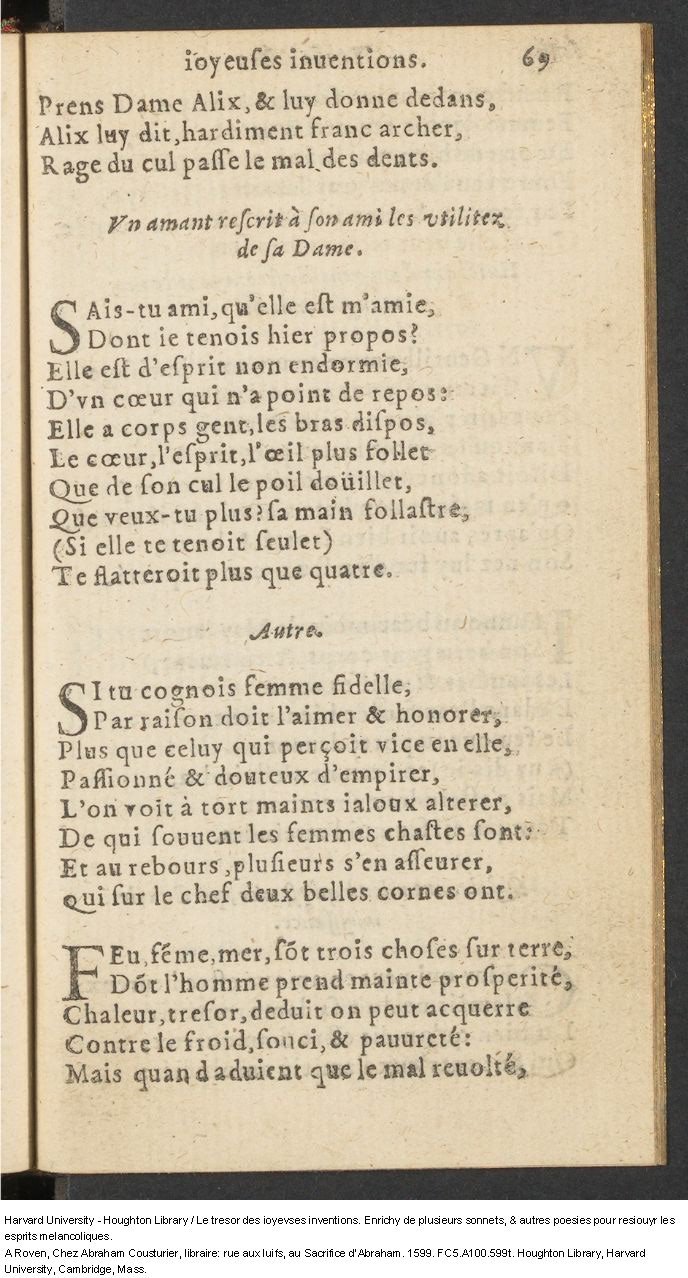 ioyeuſes inuentions. 69
Prens Dame Alix, & luy donne dedans,
Alix luy dit, hardiment franc archer,
Rage du cul paſſe le mal des dents.
Vn amant reſcrit à ſon ami les vtilitez
de ſa Dame.
SAis-tu ami, qu'elle eſt m'amie,
Dont ie tenois hier propos?
Elle eſt d'eſprit non endormie,
D'vn cœur qui n'a point de repos:
Elle a corps gent, les bras diſpos,
Le cœur, l'eſprit, l'œil plus follet
Que de ſon cul le poil doüillet,
Que veux-tu plus? ſa main follaſtre,
(Si elle te tenoit ſeulet)
Te flatteroit plus que quatre.
Autre.
SI tu cognois femme fidelle,
Par raiſon doit l'aimer & honorer,
Plus que celuy qui perçoit vice en elle,
Paſſionné & douteux d'empirer,
L'on voit à tort maints ialoux alterer,
De qui ſouuent les femmes chaſtes ſont:
Et au rebours, pluſieurs s'en aſſeurer,
Qui ſur le chef deux belles cornes ont.
FEu, féme, mer, ſót trois choſes ſur terre,
Dót l'homme prend mainte proſperité,
Chaleur, treſor, deduit on peut acquerre
Contre le froid, ſouci, & pauureté:
Mais quand aduient que le mal reuolté,
Harvard University - Houghton Library / Le tresor des ioyevses inventions. Enrichy de plusieurs sonnets, & autres poesies pour resiouyr les
esprits melancoliques.
A Roven, Chez Abraham Cousturier, libraire: rue aux Iuifs, au Sacrifice d'Abraham. 1599. FC5.A100.599t. Houghton Library, Harvard
University, Cambridge, Mass.